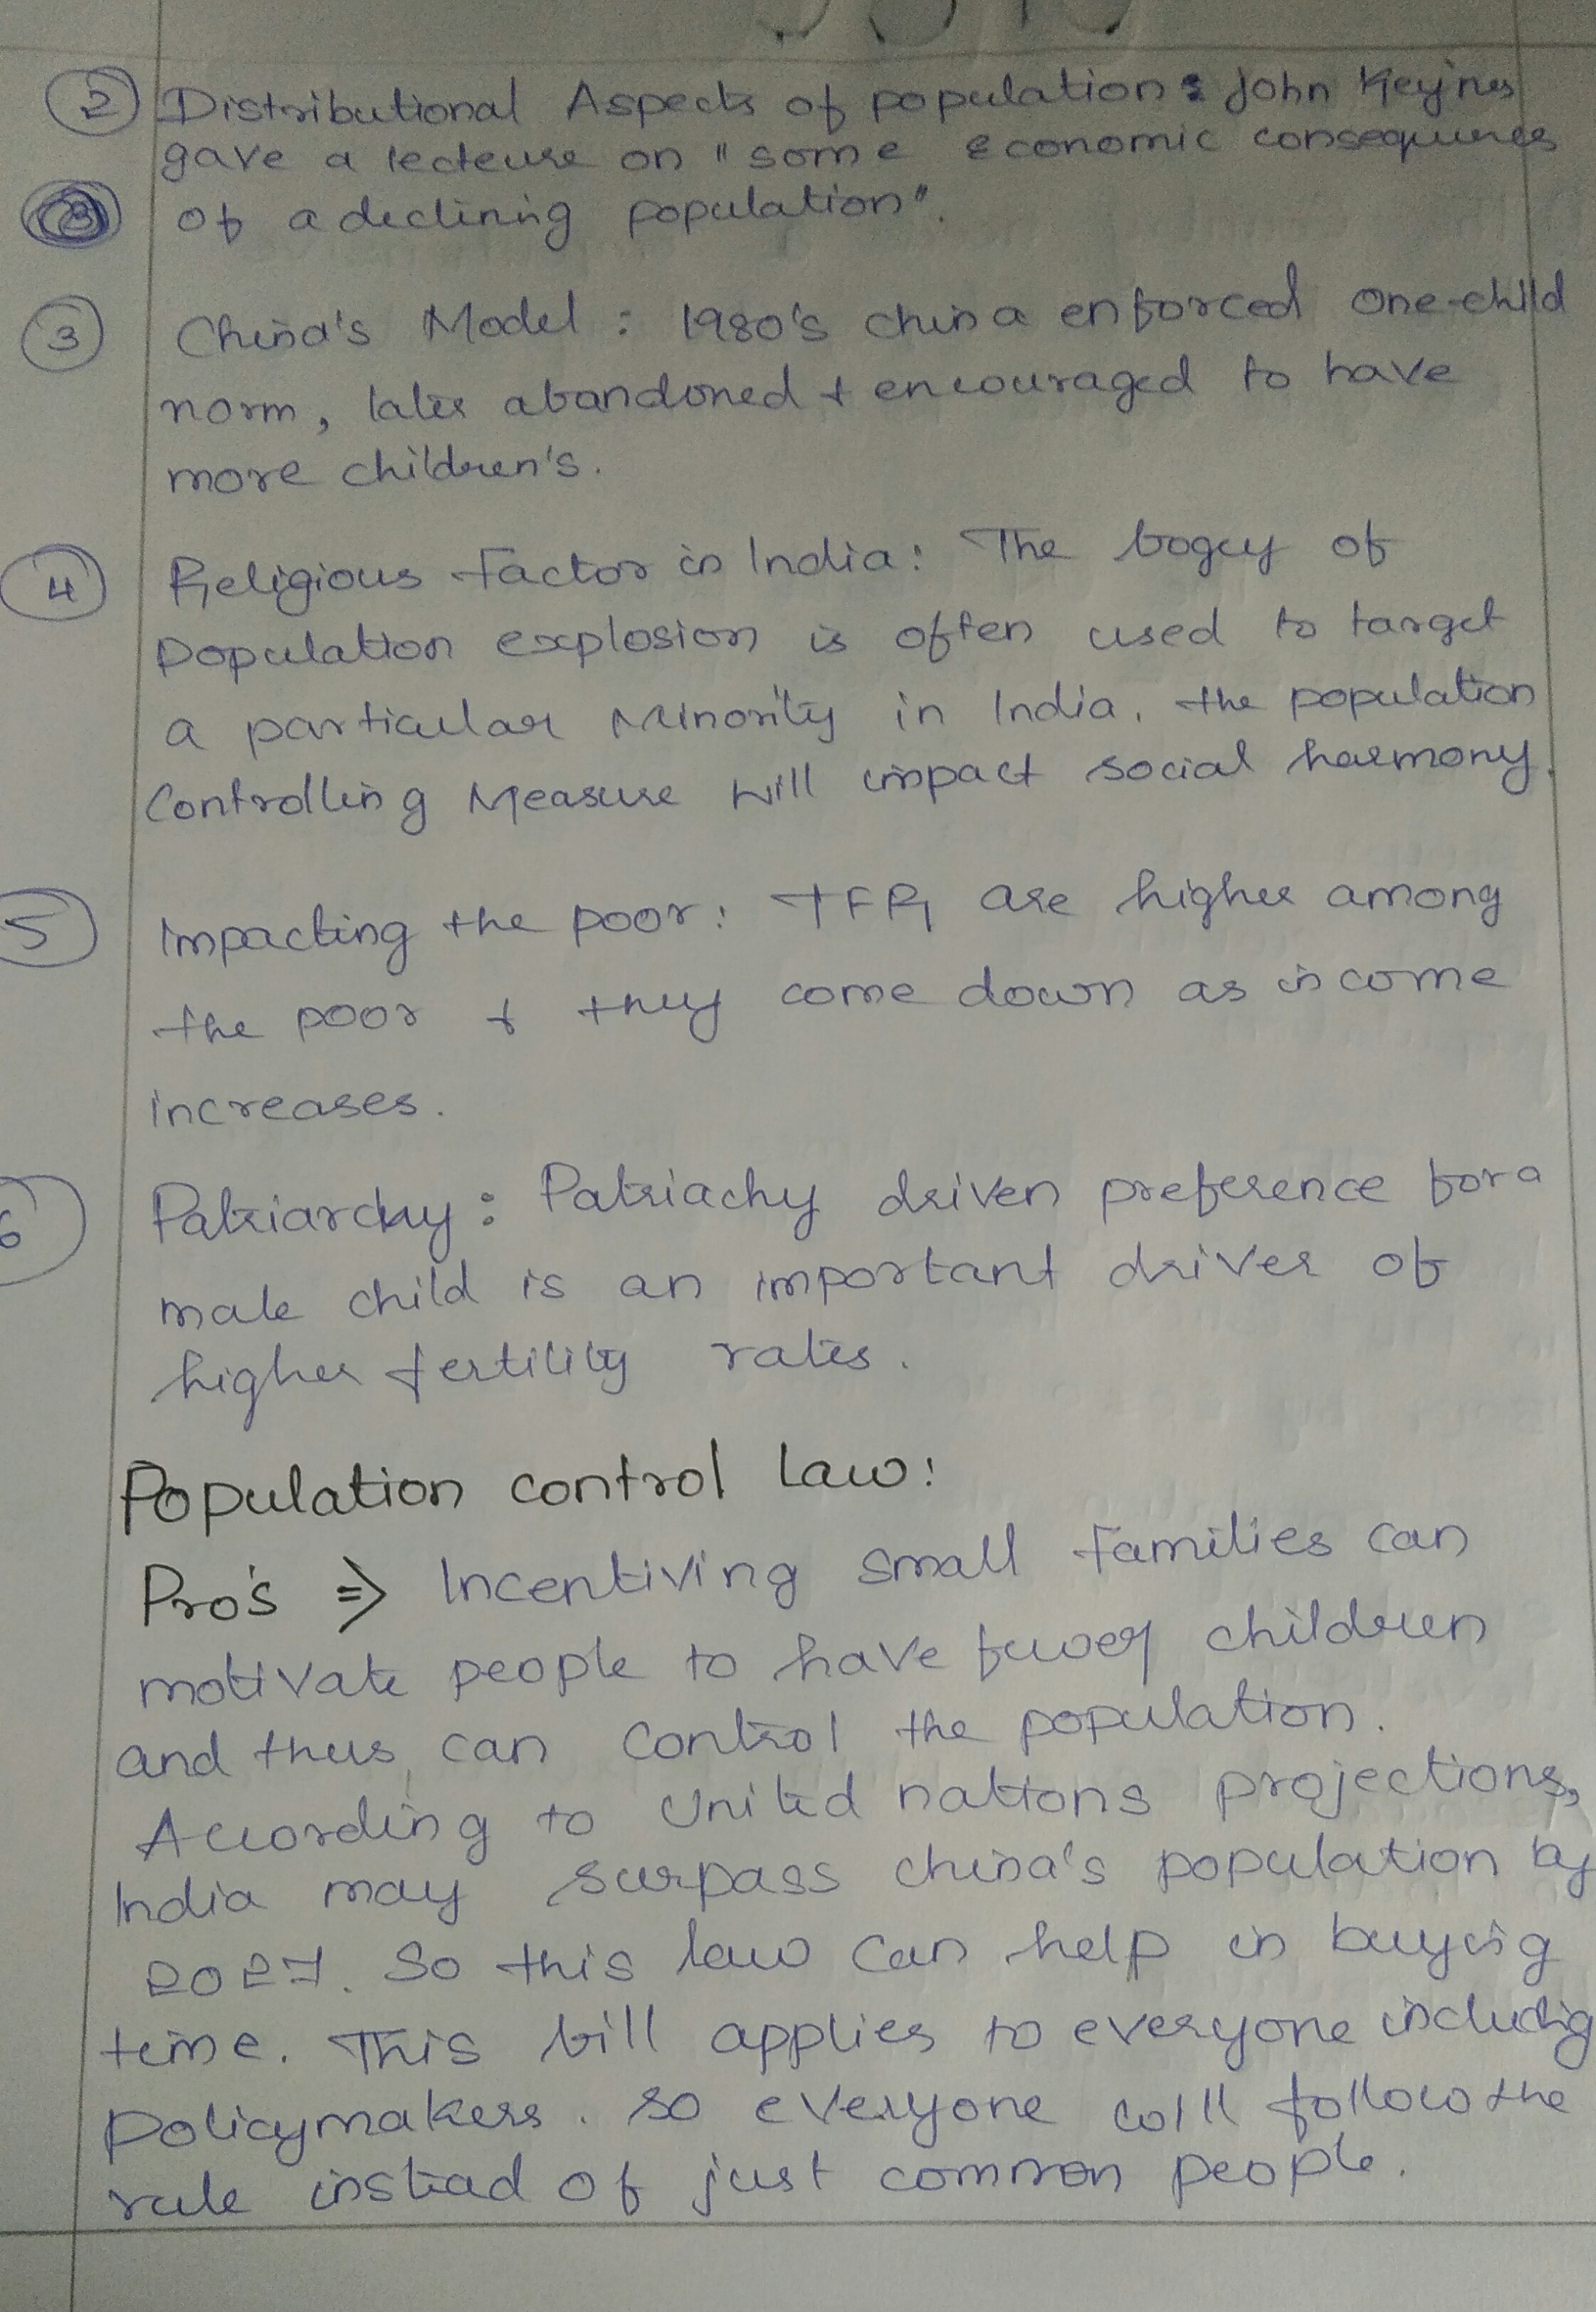 ② Distributional Aspects of population : John Keynes
gave a lecteure on "some economic consequences
of a declining population".
③ China's Model : 1980's china enforced one-child
norm, later abandoned & encouraged to have
more children's.
④ Religious Factor in India: The bogey of
Population explosion is often used to target
a particular Minority in India. the population
Controlling Measure will impact social harmony.
⑤ Impacting the poor: TFR are higher among
the poor & they come down as income
increases.
⑥ Patriarchy: Patriachy driven preference for a
male child is an important driver of
higher fertility rates.
Population control Law:
Pro's ⇒ Incentiving small families can
motivate people to have fewer children
and thus, can control the population.
According to United nations projections,
India may surpass china's population by
2027. So this law can help in buying
time. This bill applies to everyone including
policymakers. so everyone will follow the
rule instead of just common people.